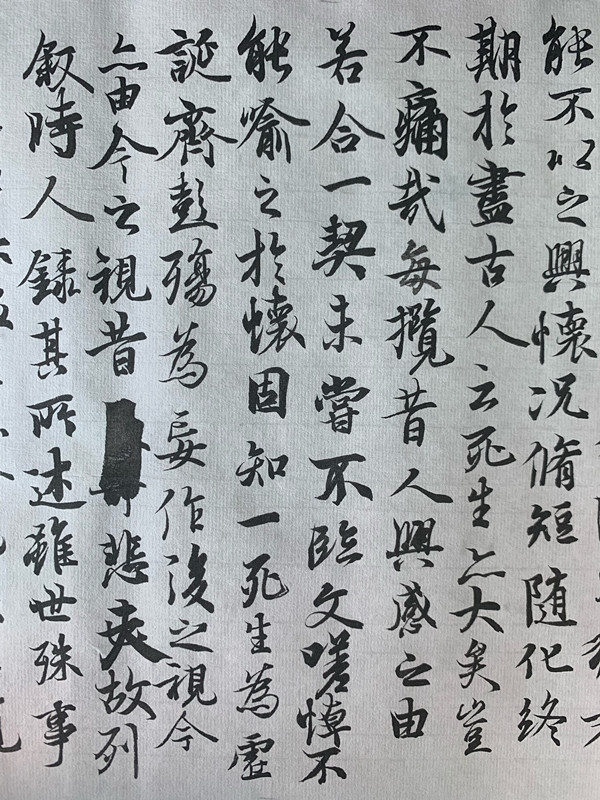 能不以之興懷況脩短随化終
期於盡古人云死生亦大矣豈
不痛哉每攬昔人興感之由
若合一契未嘗不臨文嗟悼不
能喻之於懷固知一死生為虛
誕齊彭殤為妄作後之視今
亦由今之視昔悲夫故列
叙時人錄其所述雖世殊事